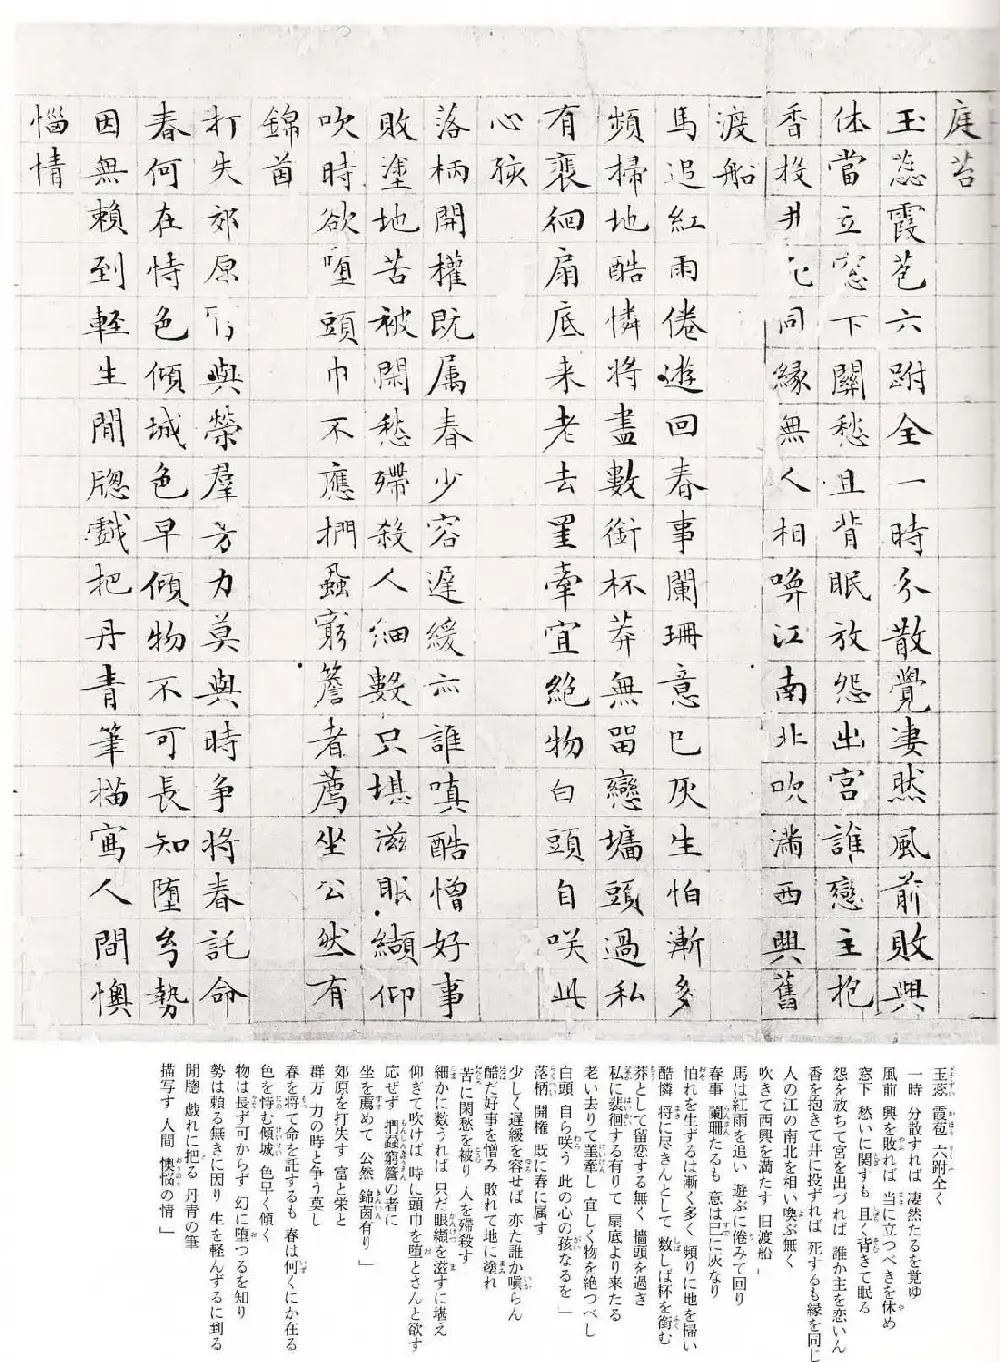 庭苔
玉蕊霞苞六跗全一時分散覺凄然風前敗興
休當立窓下關愁且背眠放怨出宮誰戀主抱
香投井死同縁無人相喚江南北吹満西興舊
渡船
馬追紅雨倦遊回春事闌珊意已灰生怕漸多
頻掃地酷憐將盡數銜杯莽無留戀墻頭過私
有裵徊扇底来老去罣牽宜絶物白頭自咲此
心孩
落柄開權既属春少容遅緩亦誰嗔酷憎好事
敗塗地苦被閑愁殢殺人細數只堪滋眼纈仰
吹時欲堕頭巾不應捫蝨窮簷者薦坐公然有
錦茵
打失郊原與榮羣芳力莫與時争將春託命
春何在恃色傾城色早傾物不可長知堕勢
因無頼到輕生閒牎戲把丹青筆描寫人間懊
惱情
玉蕊 霞苞 六跗全く
一時 分散すれば 凄然たるを覚ゆ
風前 興を敗れば 当に立つべきを休め
窓下 愁いに関ずも 且く背きて眠る
怨を放ちて宮を出づれば 誰か主を恋いん
香を抱きて井に投ずれば 死するも縁を同じ
人の江の南北を相い喚ぶ無く
吹きて西興を満たす 旧渡船」
馬は紅雨を追い 遊ぶに倦みて回り
春事 闌珊たるも 意は已に灰なり
怕れを生ずるは漸く多く 頻りに地を掃い
酷憐 将に尽きんとして 数しば杯を銜む
莽として留恋する無く 墻頭を過ぎ
私に裴徊する有りて 扇底より来たる
老い去りて罣牽し 宜しく物を絶つべし
白頭 自ら咲う 此の心の孩なるを」
落柄 開権 既に春に属す
少しく遅緩を容せば 亦た誰か嗔らん
酷だ好事を憎み 敗れて地に塗れ
苦に閑愁を被り 人を殢殺す
細かに数うれば 只だ眼纈を滋すに堪え
仰ぎて吹けば 時に頭巾を堕とさんと欲す
応ぜず 捫蝨窮簷の者に
坐を薦めて 公然 錦茵有り」
郊原を打失す 富と栄と
群芳 力の時と争う莫し
春を将て命を託するも 春は何くにか在る
色を恃む傾城 色早く傾く
物は長ず可からず 幻に堕つるを知り
勢は頼る無きに因り 生を軽んずるに到る
閒牎 戯れに把る 丹青の筆
描写す 人間 懊悩の情」